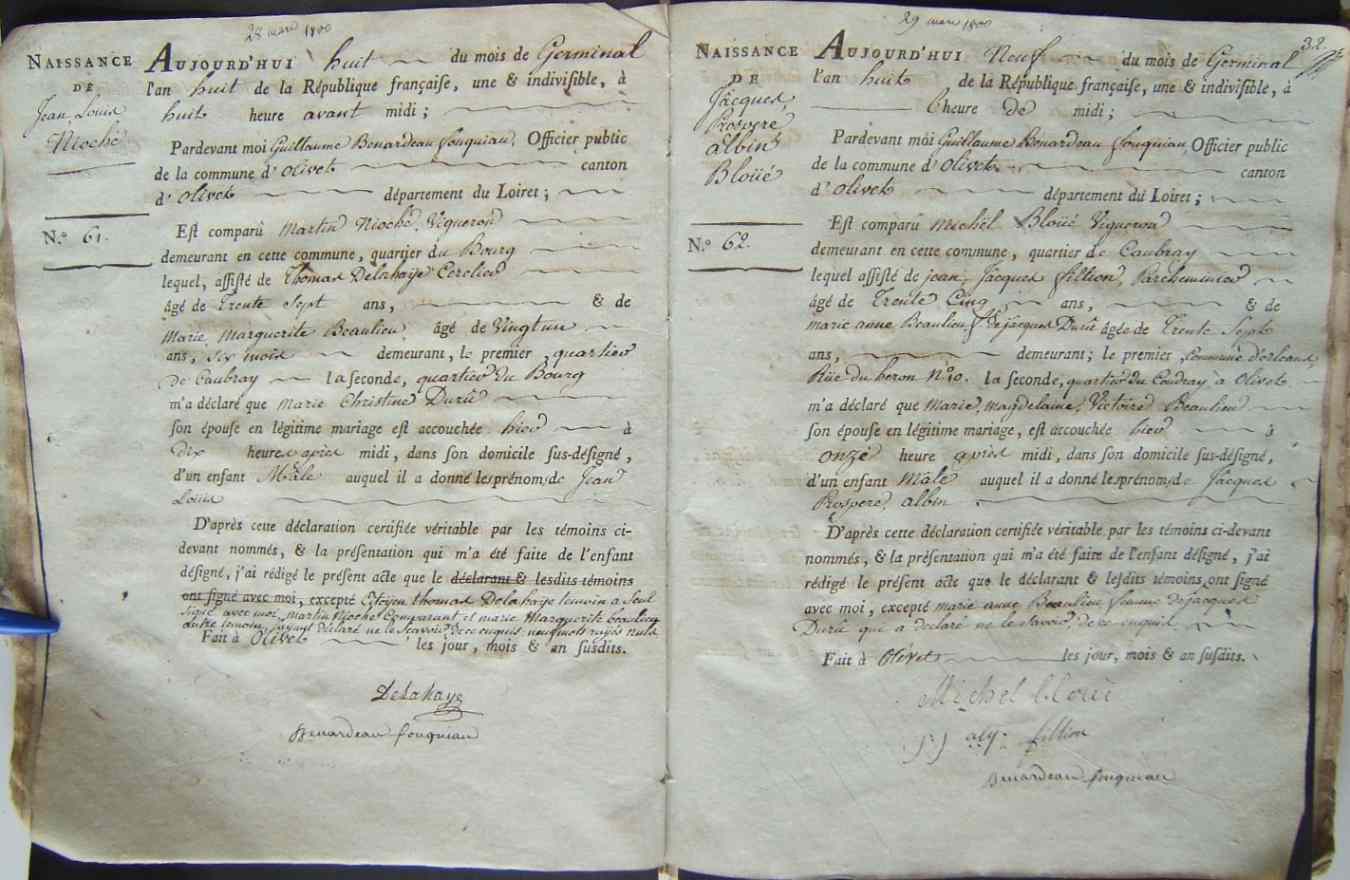 28 mars 1800
NAISSANCE
DE
Jean Louis
Nioché
N.º 61.
AUJOURD'HUI huit du mois de Germinal
l'an huit de la République françaiſe, une & indiviſible, à
huit heure avant midi ;
Pardevant moi Guillaume Benardeau fouquiau, Officier public
de la commune d'olivet canton
d'olivet département du Loiret ;
Eſt comparû Martin Nioché, Vigneron
demeurant en cette commune, quartier du Bourg
lequel, aſſiſté de Thomas Delahaye Cerclier
âgé de Trente Sept ans, & de
Marie Marguerite Beaulieu âgé de Vingt un
ans, six mois demeurant, le premier, quartier
de Caubray la ſeconde, quartier du Bourg
m'a déclaré que Marie Christine Durû
ſon épouſe en légitime mariage eſt accouchée hier à
dix heures après midi, dans ſon domicile ſus-déſigné,
d'un enfant Mâle auquel il a donné les prénoms de Jean
Louis
D'après cette déclaration certifiée véritable par les témoins ci-
devant nommés, & la préſentation qui m'a été faite de l'enfant
déſigné, j'ai rédigé le préſent acte que le déclarant & leſdits témoins
ont ſigné avec moi, excepté Citoyen thomas Delahaye temoin a Seul
Signé avec moi, Martin Nioché Comparant et marie Marguerite beaulieu
autre temoin, ayant déclaré ne le Scavoir de ce enquis, neuf mots rayés nuls
Fait à Olivet les jour, mois & an ſuſdits.
Delahaye
Benardeau fouquiau
29 mars 1800
32.
NAISSANCE
DE
Jacques,
Prospere
albin
Bloüé
N.º 62.
AUJOURD'HUI Neuf du mois de Germinal
l'an huit de la République françaiſe, une & indiviſible, à
l'heure de midi ;
Pardevant moi Guillaume Benardeau fouquiau, Officier public
de la commune d'olivet canton
d'olivet département du Loiret ;
Eſt comparû Michel Bloüé Vigneron
demeurant en cette commune, quartier de Caubray
lequel aſſiſté de jean, Jacques fillion, Parcheminier
âgé de Trente Cinq ans, & de
marie anne Beaulieu fe de jacques Durû âgée de Trente Sept
ans, demeurant ; le premier, Commune d'orleans,
Rüe du heron N.º 10. la ſeconde, quartier du Coudray à Olivet
m'a déclaré que Marie, magdelaine, Victoire Beaulieu
ſon épouſe en légitime mariage, eſt accouchée hier à
onze heure après midi, dans ſon domicile ſus-déſigné,
d'un enfant Mâle auquel il a donné les prénoms de Jacques
Prospere, albin
D'après cette déclaration certifiée véritable par les témoins ci-devant
nommés, & la préſentation qui m'a été faite de l'enfant déſigné, j'ai
rédigé le préſent acte que le déclarant & leſdits témoins ont ſigné
avec moi, excepté marie anne Beaulieu femme de jacques
Durû qui a declaré ne le savoir de ce enquis
Fait à Olivet les jour, mois & an ſuſdits.
Michel bloüé
j j fillion
Benardeau fouquiau